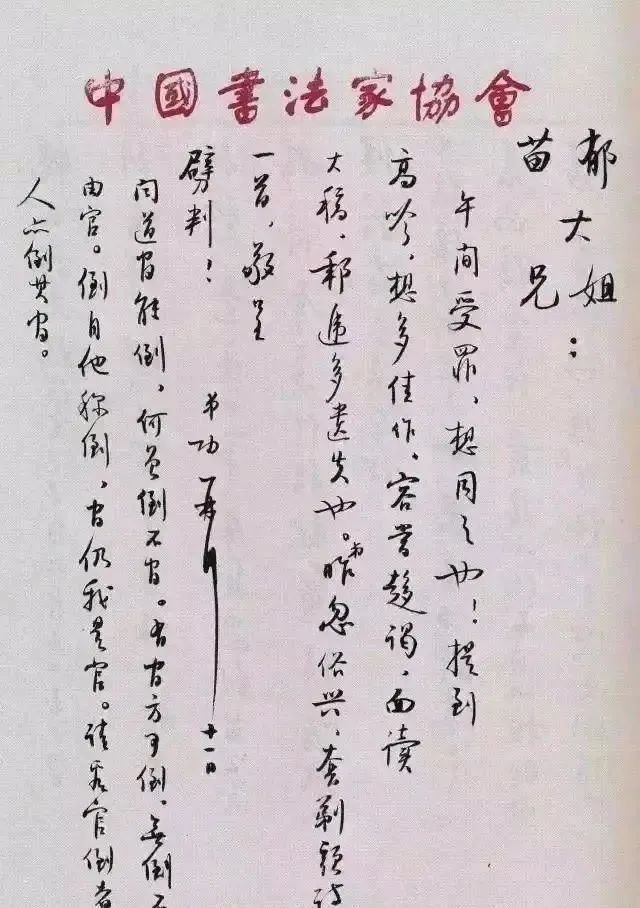 中國書法家協會
郁大姐：
苗兄
午间受罪、想同之也！提到
高吟、想多佳作、容當趨謁、面讀
大稿、郵遞多遺失也。弟昨忽俗兴、套剃頭诗
一首、敬呈
劈判！
弟功 再拜 十一日
问道官能倒、何曾倒不官。有官方可倒、無倒不
由官。倒自他称倒、官仍我是官。请看官倒者
人亦倒其官。